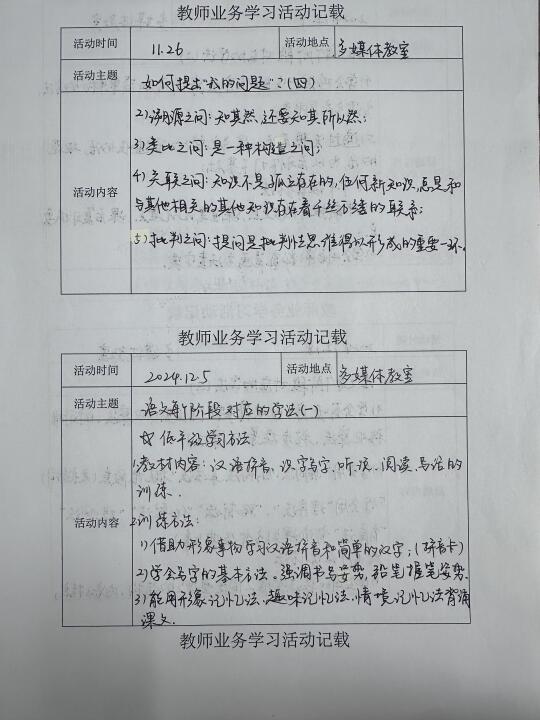 教师业务学习活动记载
活动时间 11.26 活动地点 多媒体教室
活动主题 如何提出“我的问题”?(四)
活动内容
2)溯源之问:知其然,还要知其所以然;
3)类比之问:是一种构造之问;
4)关联之问:知识不是孤立存在的,任何新知识,总是和
与其他相关的其他知识存在着千丝万缕的联系;
5)批判之问:提问是批判性思维得以形成的重要一环.
教师业务学习活动记载
活动时间 2024.12.5 活动地点 多媒体教室
活动主题 语文每个阶段对应的学法(一)
活动内容
☆ 低年级学习方法
1.教材内容:汉语拼音、识字写字、听说、阅读、写话的
训练.
2.训练方法:
1)借助形象事物学习汉语拼音和简单的汉字;(拼音卡)
2)学会写字的基本方法.强调书写姿势,铅笔握笔姿势.
3)能用形象记忆法、趣味记忆法、情境记忆法背诵
课文.
教师业务学习活动记载